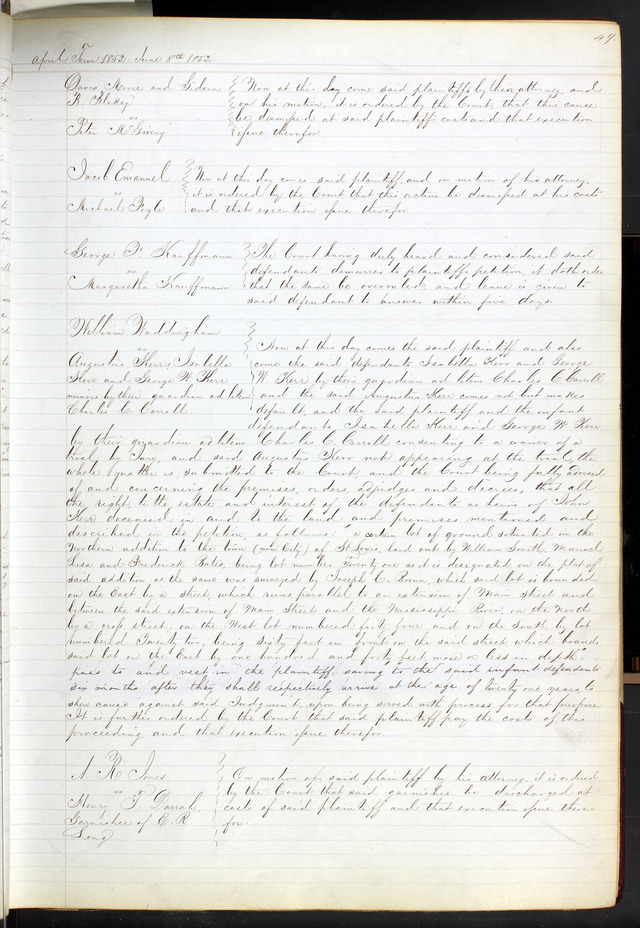 49.
April Term 1852. June 8th 1852.
Davis, Moore and Gideon
B. Blakey
vs
Peter McGiving
Now at this day come said plaintiffs by their attorney, and
on his motion, it is ordered by the Court, that this cause
be dismissed at said plaintiffs costs and that execution
issue therefor.
Jacob Emanuel
vs
Michael Fogle
Now at this day comes said plaintiff, and on motion of his attorney,
it is ordered by the Court that this action be dismissed at his costs
and that execution issue therefor.
George F. Kauffmann
vs
Margaretha Kauffmann
The Court having duly heard and considered said
defendants demurrer to plaintiffs petition, it doth order
that the same be overruled, and leave is given to
said defendant to answer within five days.
William Waddingham
vs
Augustus Kerr, Isabella
Kerr and George W. Kerr
minors by their guardian ad litem
Charles C. Carroll.
Now at this day comes the said plaintiff and also
come the said defendants Isabella Kerr and George
W. Kerr by their guardian ad litem Charles C. Carroll
and the said Augustus Kerr comes not but makes
default, and the said plaintiff and the infant
defendants Isabella Kerr and George W. Kerr
by their guardian ad litem Charles C. Carroll consenting to a waiver of a
trial by Jury, and said Augustus Kerr not appearing at the trial, the
whole matter is submitted to the Court, and the Court being fully advised
of and concerning the premises, orders, adjudges and decrees, that all
the right, title, estate and interest of the defendants as heirs of John
Kerr deceased in and to the land and premises mentioned and
described in the petition, as follows: "a certain lot of ground situated in the
Northern addition to the town (now City) of St Louis, laid out by William Smith, Manuel
Lisa and Frederick Bates, being lot number Twenty one as it is designated on the plat of
said addition as the same was surveyed by Joseph C. Brown, which said lot is bounded
on the East by a street, which runs parallel to an extension of Main street and
between the said extension of Main Street and the Mississippi River, on the North
by a cross street, on the West lot numbered forty four and on the South by lot
numbered Twenty two, being Sixty feet in front on the said street which bounds
said lot on the East by one hundred and forty feet more or less in depth"
pass to and vest in the plaintiff, saving to the said infant defendants
six months after they shall respectively arrive at the age of twenty one years, to
shew cause against said Judgment, upon being served with process for that purpose.
It is further ordered by the Court that said plaintiff pay the costs of this
proceeding and that execution issue therefor.
A R Jones
vs
Henry T. Darrah
Garnishee of E. R.
Long
On motion of said plaintiff by his attorney, it is ordered
by the Court that said garnishee be discharged at
costs of said plaintiff and that execution issue there-
for.